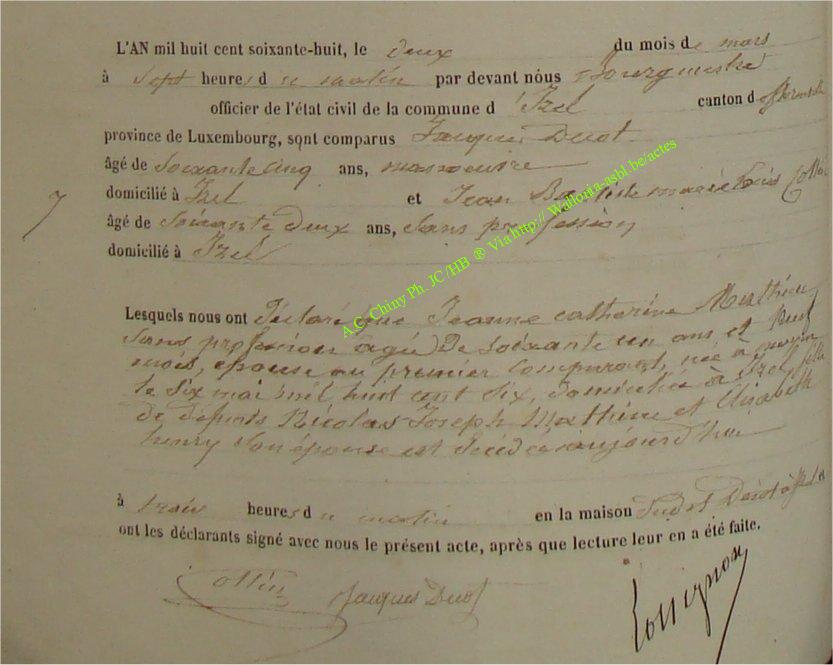 L'AN mil huit cent soixante-huit, le deux du mois de mars
à sept heures du matin par devant nous Bourgmestre
officier de l'état civil de la commune d'Izel canton de
province de Luxembourg, sont comparus Jacques Ducot
âgé de soixante cinq ans, manoeuvre
7 domicilié à Izel et Jean Baptiste marie Louis
âgé de soixante deux ans, sans profession
domicilié à Izel
A.G. Chiny Ph. JC/HB ® Via http:// Wallonia-asbl.be/actes
Lesquels nous ont déclaré que Jeanne catherine Mathieu
sans profession agée de soixante un ans et neuf
mois, épouse au premier comparant, née à
le six mai mil huit cent six, domiciliée à Izel fille
de défunts Nicolas Joseph Mathieu et Elisabeth
henry son épouse est décédée aujourd'hui
à trois heures du matin en la maison dudit Ducot à Izel et
ont les déclarants signé avec nous le présent acte, après que lecture leur en a été faite.
ollin Jacques Ducot